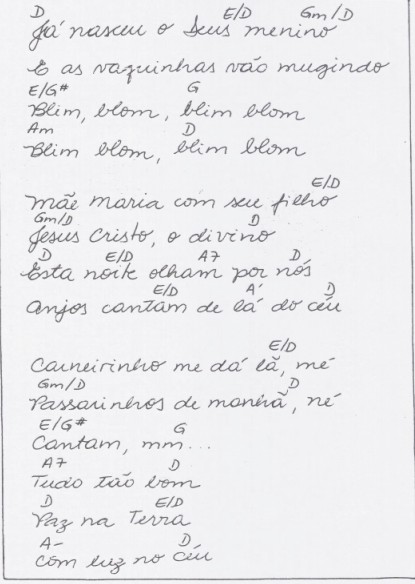 D E/D Gm/D
Já nasceu o Deus menino
E as vaquinhas vão mugindo
E/G# G
Blim, blom, blim blom
Am D
Blim blom, blim blom
E/D
Mãe Maria com seu filho
Gm/D D
Jesus Cristo, o divino
D E/D A7 D
Esta noite olham por nós
E/D A' D
Anjos cantam de lá do céu
E/D
Carneirinho me dá lã, mé
Gm/D D
Passarinhos de manhã, né
E/G# G
Cantam, mm...
A7 D
Tudo tão bom
D E/D
Paz na Terra
A- D
Com luz no Céu